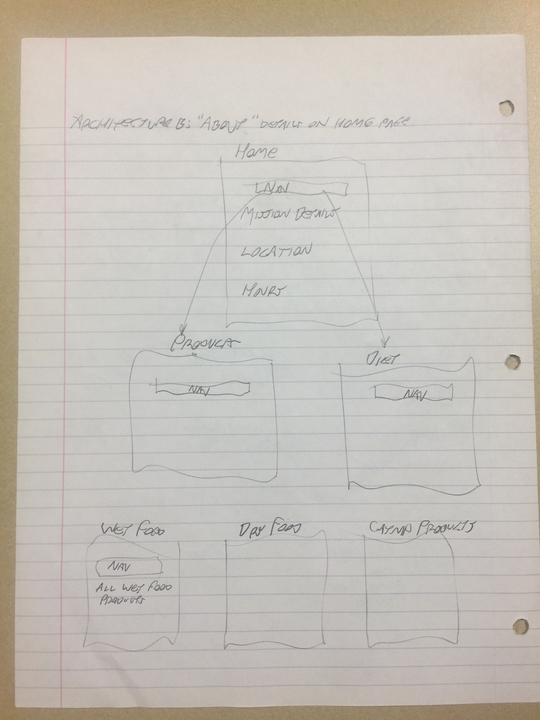 ARCHITECTURE B: "ABOUT" DETAILS ON HOME PAGE
HOME
NAV
MISSION DETAILS
LOCATION
HOURS
PRODUCT
DIET
NAV
NAV
WET FOOD
DRY FOOD
CATNIP PRODUCTS
NAV
ALL WET FOOD
PRODUCTS